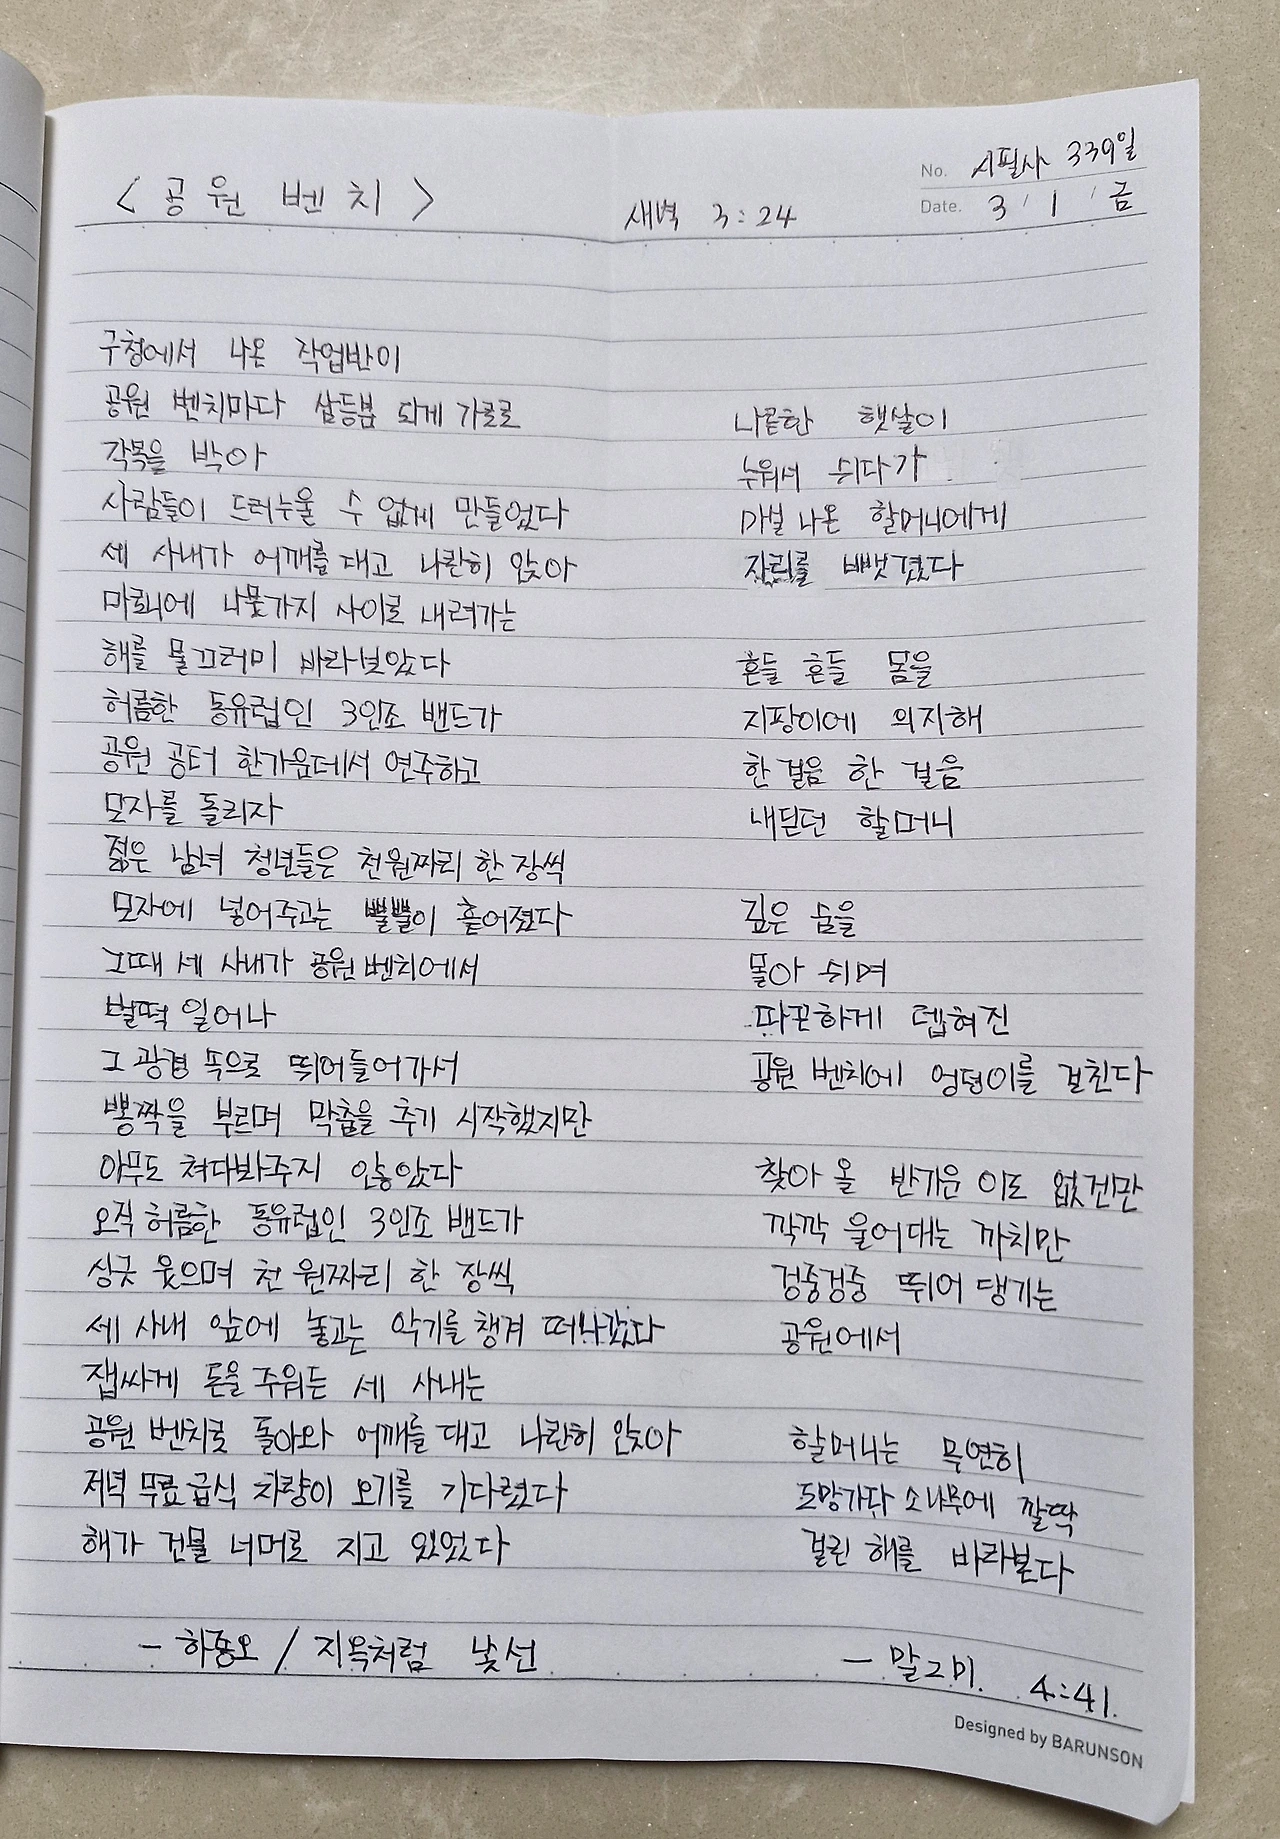 < 공원 벤치 >
새벽 3:24
No. 시필사 339일
Date. 3 / 1 / 금
구청에서 나온 작업반이
공원 벤치마다 삼등분 되게 가로로
각목을 박아
사람들이 드러누울 수 없게 만들었다
세 사내가 어깨를 대고 나란히 앉아
마로니에 나뭇가지 사이로 내려가는
해를 물끄러미 바라보았다
허름한 동유럽인 3인조 밴드가
공원 공터 한가운데서 연주하고
모자를 돌리자
젊은 남녀 청년들은 천원짜리 한 장씩
모자에 넣어주고는 뿔뿔이 흩어졌다
그때 세 사내가 공원 벤치에서
벌떡 일어나
그 광경 속으로 뛰어들어가서
뽕짝을 부르며 막춤을 추기 시작했지만
아무도 쳐다봐주지 않았다
오직 허름한 동유럽인 3인조 밴드가
싱긋 웃으며 천 원짜리 한 장씩
세 사내 앞에 놓고는 악기를 챙겨 떠나갔다
잽싸게 돈을 주워든 세 사내는
공원 벤치로 돌아와 어깨를 대고 나란히 앉아
저녁 무료급식 차량이 오기를 기다렸다
해가 건물 너머로 지고 있었다
- 하종오 / 지옥처럼 낯선
나른한 햇살이
누워서 쉬다가
마실 나온 할머니에게
자리를 빼앗겼다
흔들 흔들 몸을
지팡이에 의지해
한 걸음 한 걸음
내딛던 할머니
깊은 숨을
몰아 쉬며
따끈하게 뎁혀진
공원 벤치에 엉덩이를 걸친다
찾아 올 반가운 이도 없건만
깍깍 울어대는 까치만
겅중겅중 뛰어 댕기는
공원에서
할머니는 무연히
도망가다 소나무에 깔딱
걸린 해를 바라본다
- 말그미. 4:41.
Designed by BARUNSON